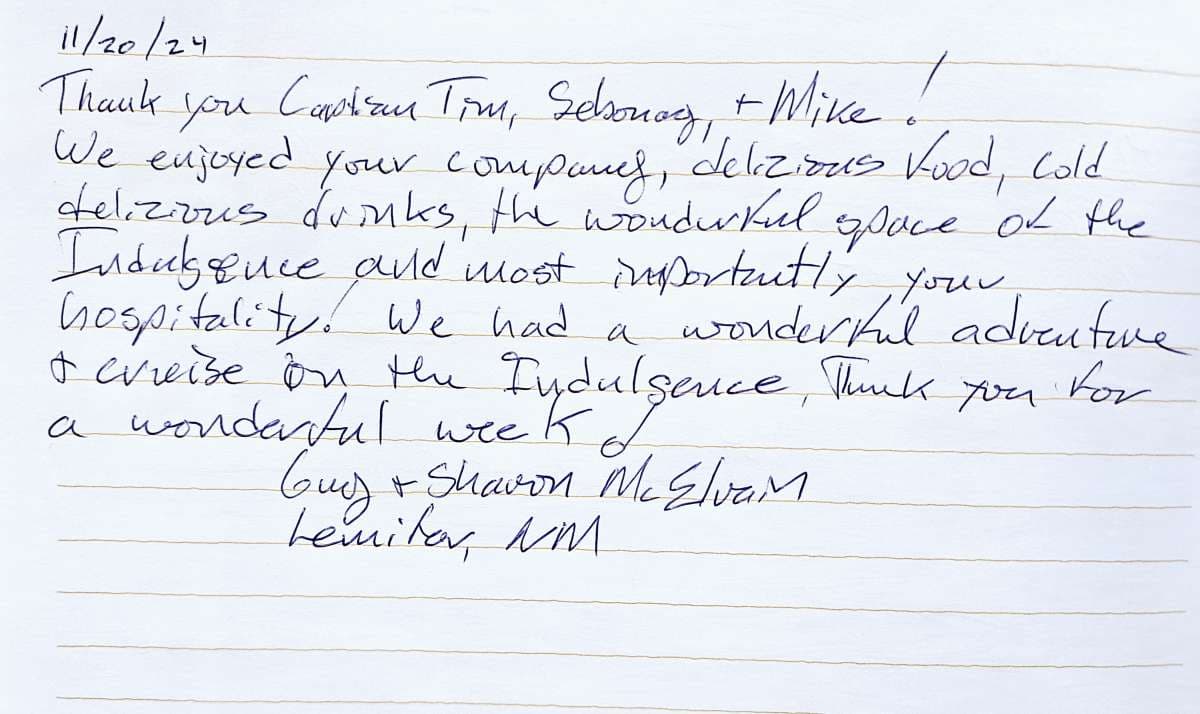 11/20/24
Thank you Captian Tim, + Mike!
We enjoyed your company, delizious food, cold
delizious drinks, the wonderful space of the
Indulgence and most importantly your
hospitality! We had a wonderful adventure
+ crueise on the Indulgence, Thank you for
a wonderful week!
Guy + Sharon McElvain
Lemitar, NM